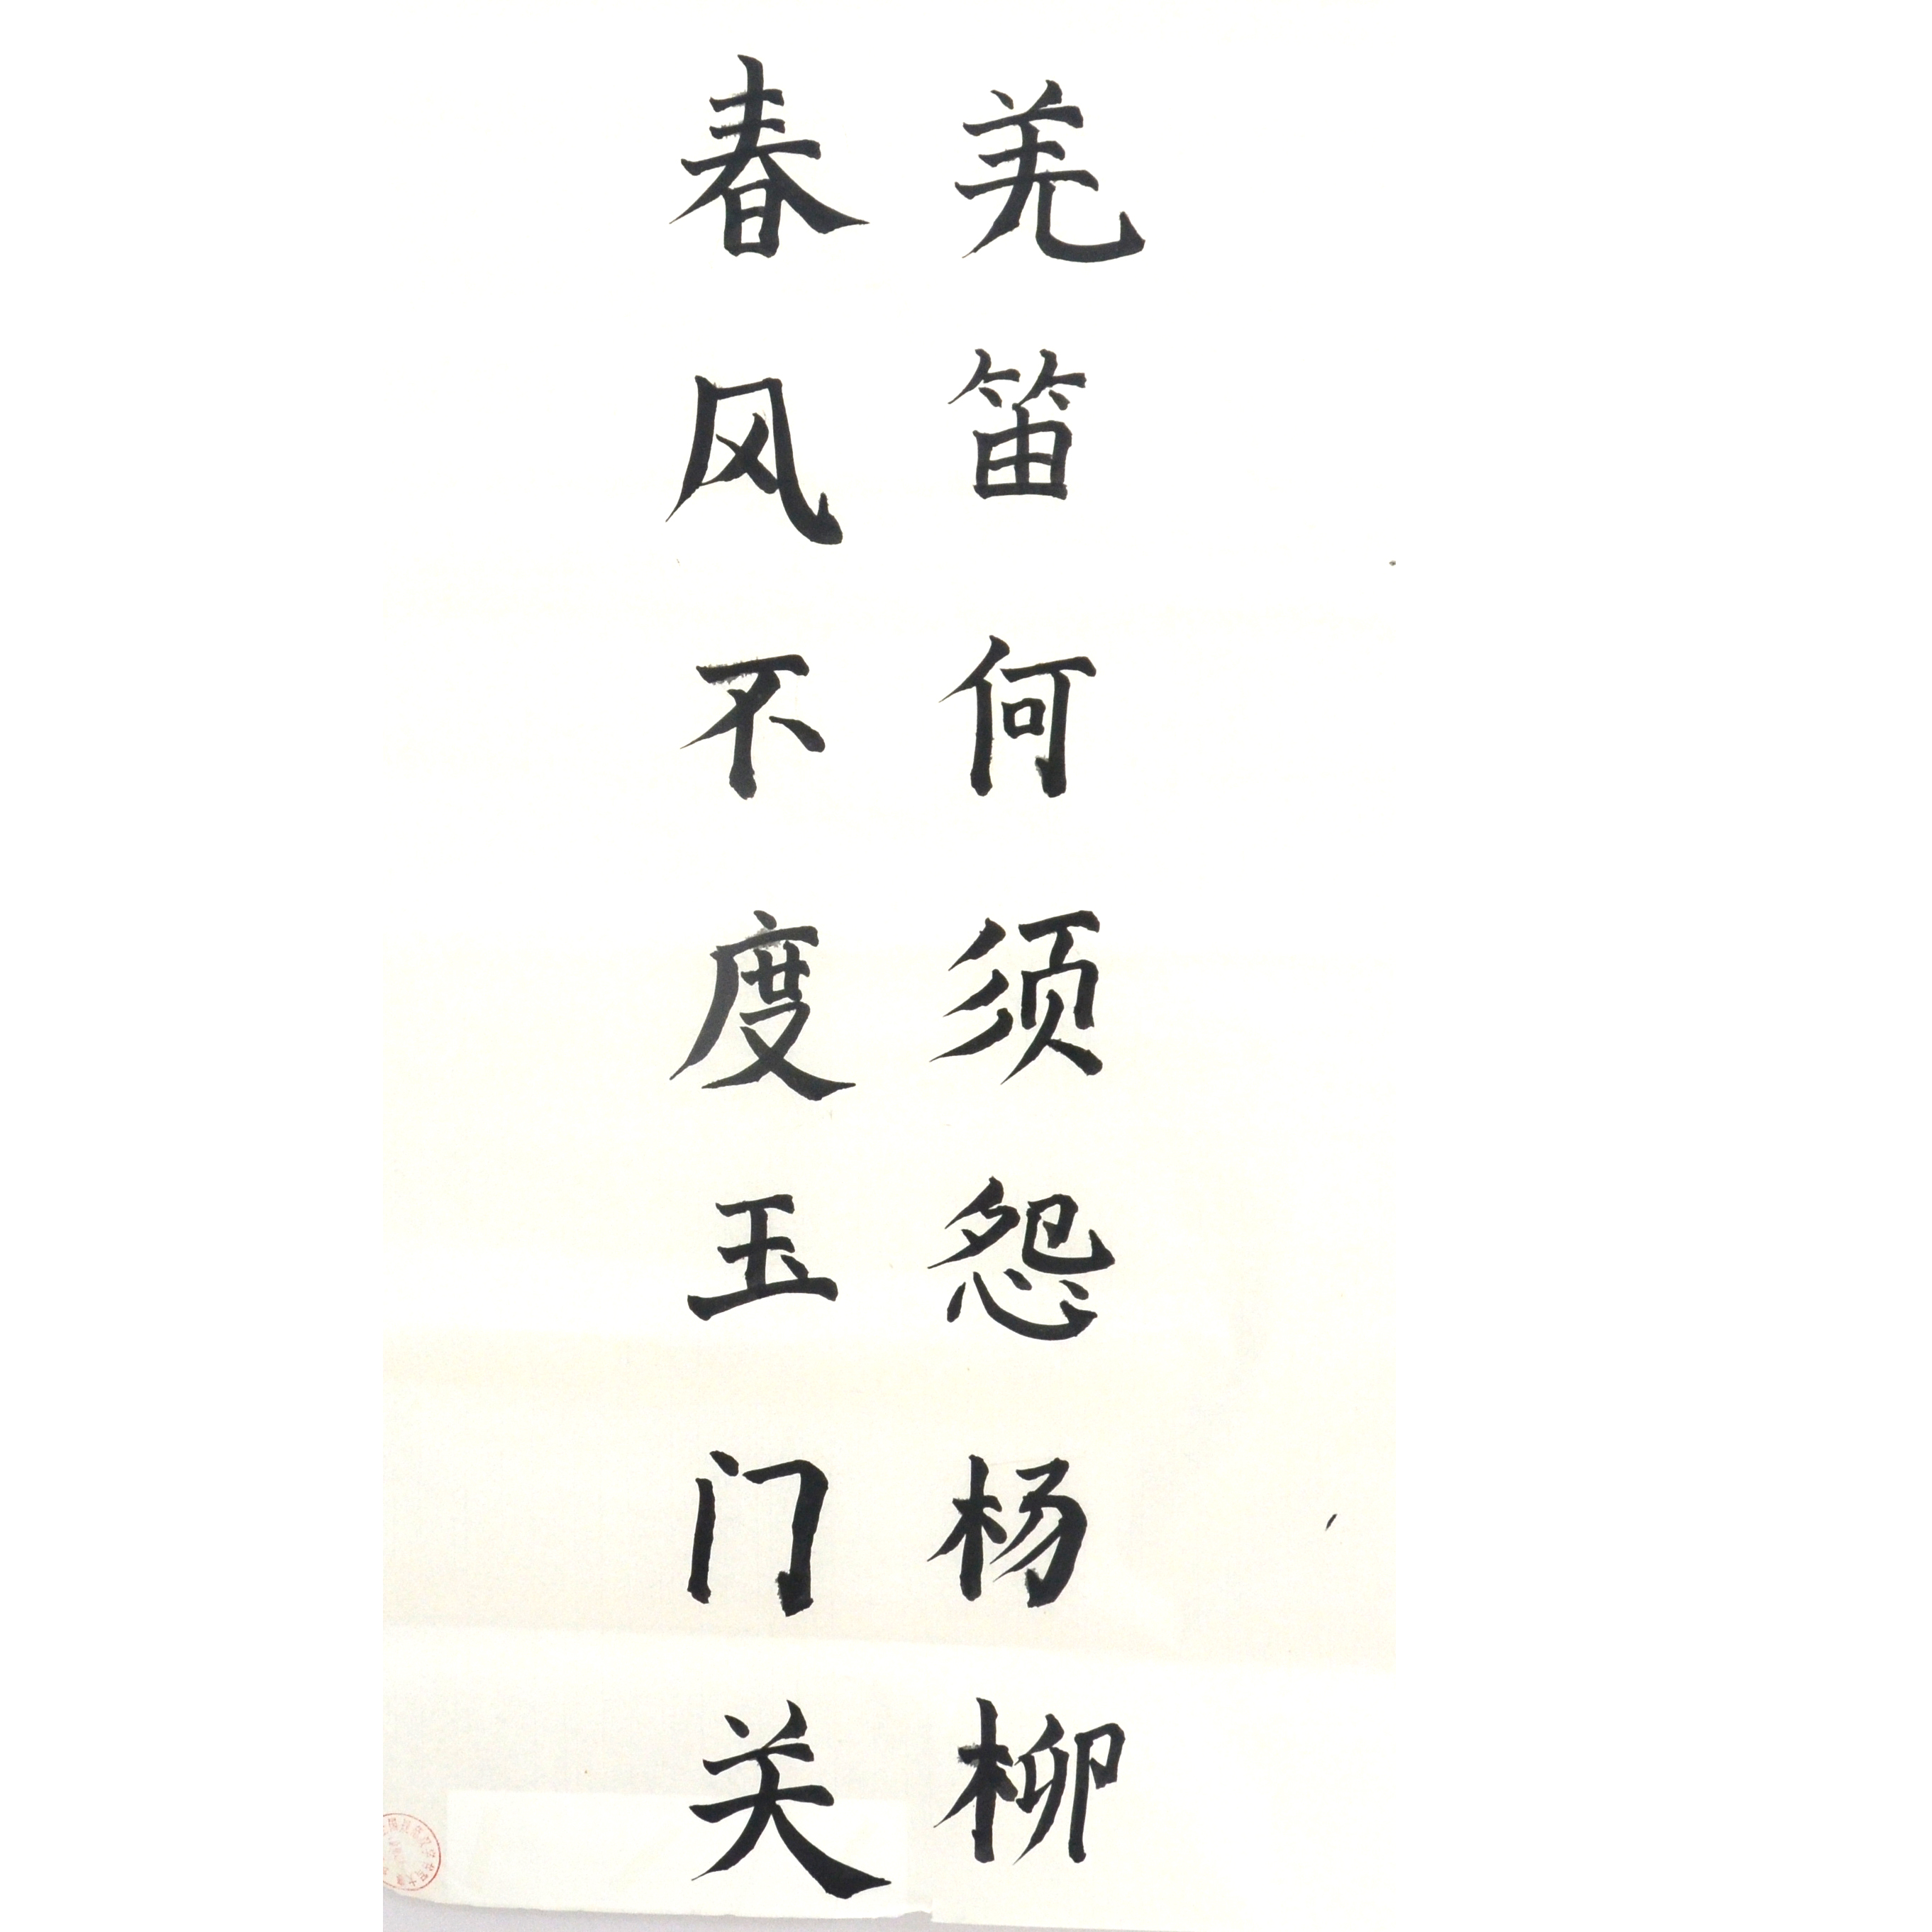 羌笛何须怨杨柳
春风不度玉门关